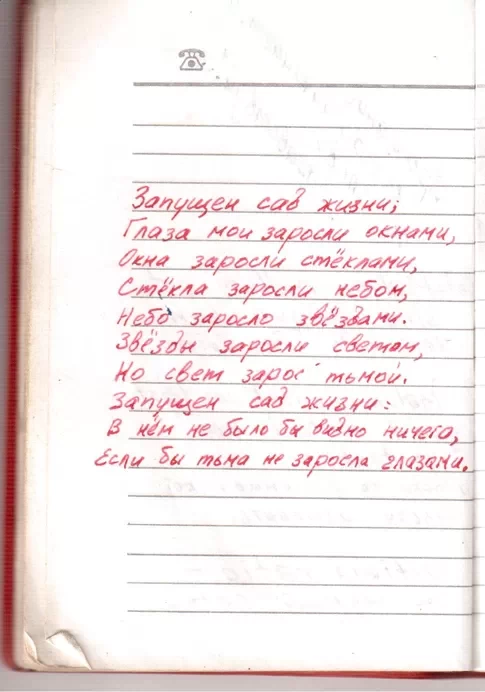 Запущен сад жизни;
Глаза мои заросли окнами,
Окна заросли стёклами,
Стёкла заросли небом,
Небо заросло звёздами.
Звёзды заросли светом,
Но свет зарос тьмой.
Запущен сад жизни:
В нём не было бы видно ничего,
Если бы тьма не заросла глазами.